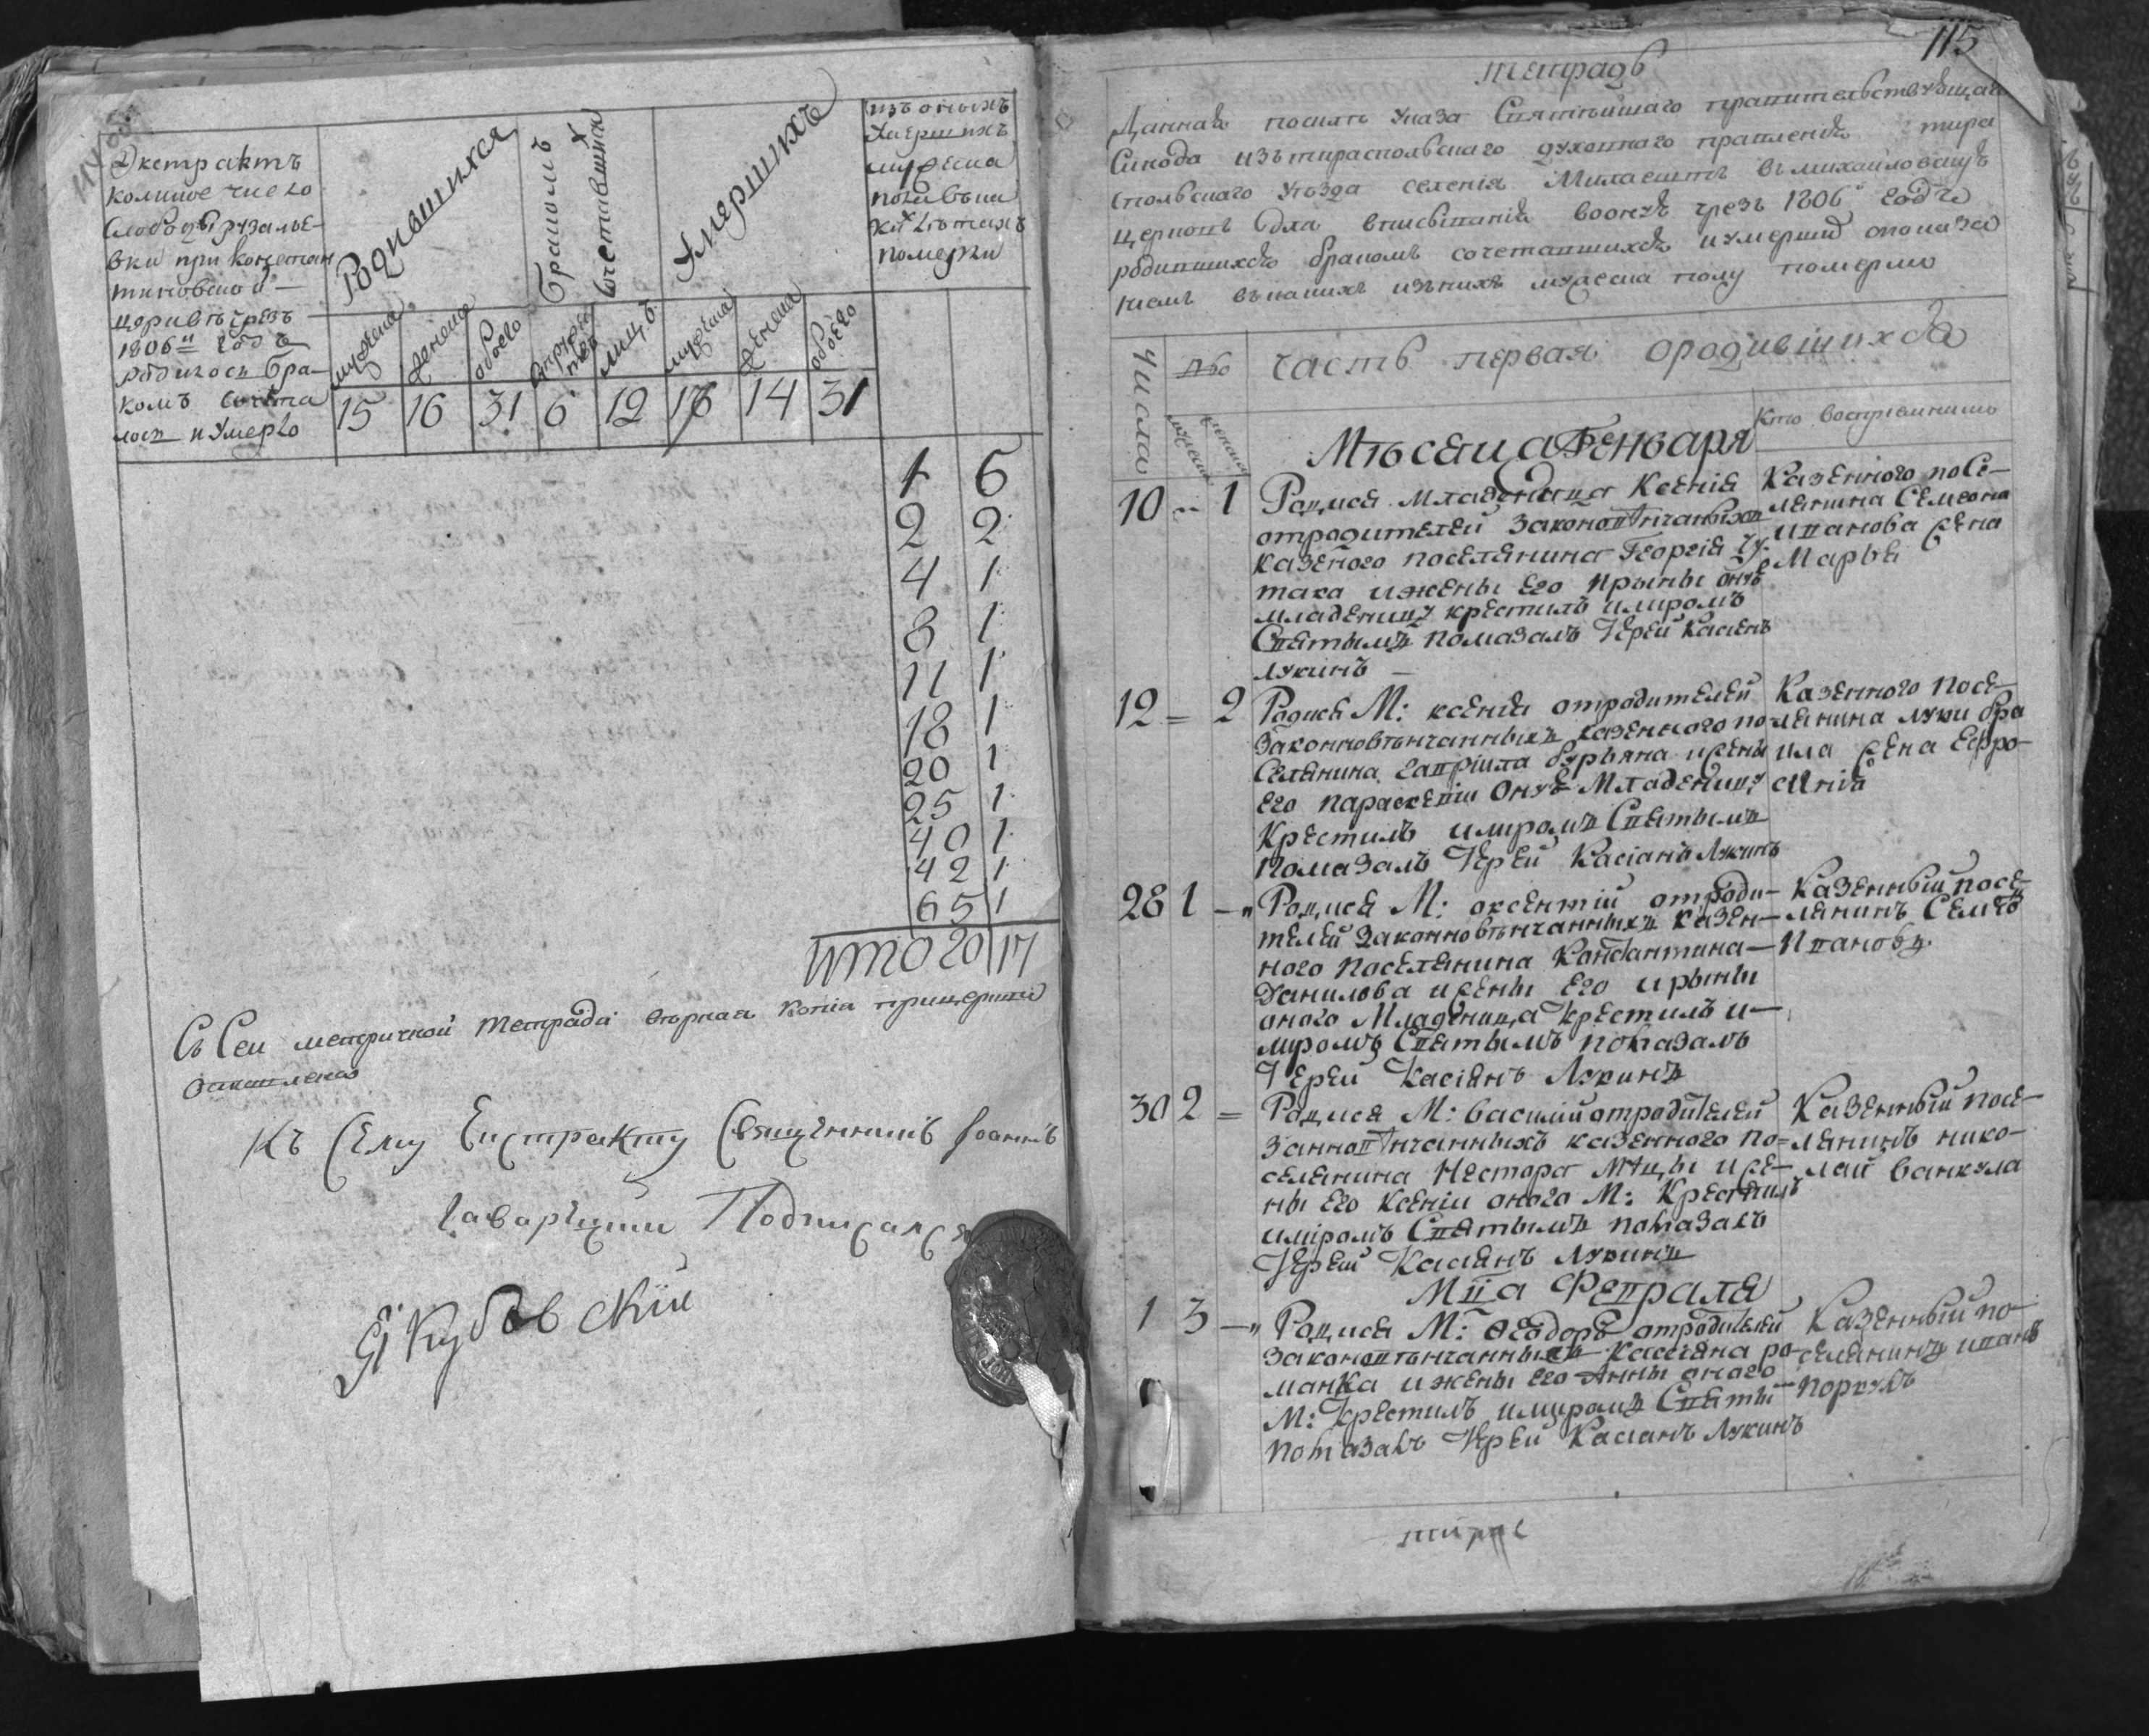 Экстрактъ
коликое число
Слободзъ
вки при констан
тиновской
церквѣ чрезъ
1806 годъ
родилось бра-
комъ сочета
лось и умерло
Родившихся
Бракомъ
сочетавшихся
Умершихъ
изъ оныхъ
умершихъ
мужеска
полу въ ка
кихъ лѣтахъ
померли
мужеска женска обоего лицъ мужеска женска обоего
15 16 31 6 12 17 14 31
1 6
2 2
4 1
8 1
11 1
18 1
20 1
25 1
40 1
42 1
65 1
итого 17
Съ Сей метричной тетради вѣрная копіа при церкви
оставлена
Къ Сему Екстракту Священникъ Іоаннъ
Подписался
Якубовскій
115
тетрадь
Данная по силѣ Указа Святѣйшаго правительствующаго
Синода изъ тираспольскаго духовнаго правленія тира
спольскаго уѣзда селенія въ михайловскую
церковь для вписыванія во оную чрезъ 1806 годъ
родившихся бракомъ сочетавшихся и умершихъ
мужеска полу померло
Числа
часть первая ородившихся
мужеска женска
Кто воспріемникомъ
Мѣсеца Генваря
10 1 Родися младеница Ксенія
отродителей законовѣнчанныхъ
казеного поселянина Георгія Чу-
така ижены Его Ирыны онꙋю
младеницу крестилъ имиромъ
Святымъ помазалъ Іерей Касіенъ
Лукинъ
Казенного посе-
лянина Семеона
иванова жена
Марья
12 2 Родися М: ксенія отродителей
Законновѣнчанныхъ казенного по
селянина Гавріила бурьяна ижены
Его Параскевіи Оную Младеницу
Крестилъ имиромъ Святымъ
Помазалъ Іерей Касіанъ Лукинъ
Казенного посе-
лянина луки бра
ила жена Ефро-
синія
28 1 Родися М: аксентій отроди-
телей Законновѣнчанныхъ казен-
ного Поселянина Константина
Данилова ижены Его ирыны
оного Младенца Крестилъ и
миромъ Святымъ помазалъ
Іерей Касіянъ Лукинъ
Казенный посе-
лянинъ Семенъ
Ивановъ
30 2 Родися М: василий отродителей
казенного по-
селянина Нестора Мꙋцы иже-
ны Его Ксеніи оного М: Крестилъ
имиромъ Святымъ помазалъ
Іерей Касіянъ Лукинъ
Казенный посе-
лянинъ нико-
лай Ванкула
Мца Февраля
1 3 Родися М: Ѳеодоръ отродителей
законовѣнчанныхъ Касіяна ро-
манка ижены Его Анны оного
М: Крестилъ имиромъ Святы
помазалъ Іерей Касіанъ Лукинъ
Казенный по-
селянинъ иванъ